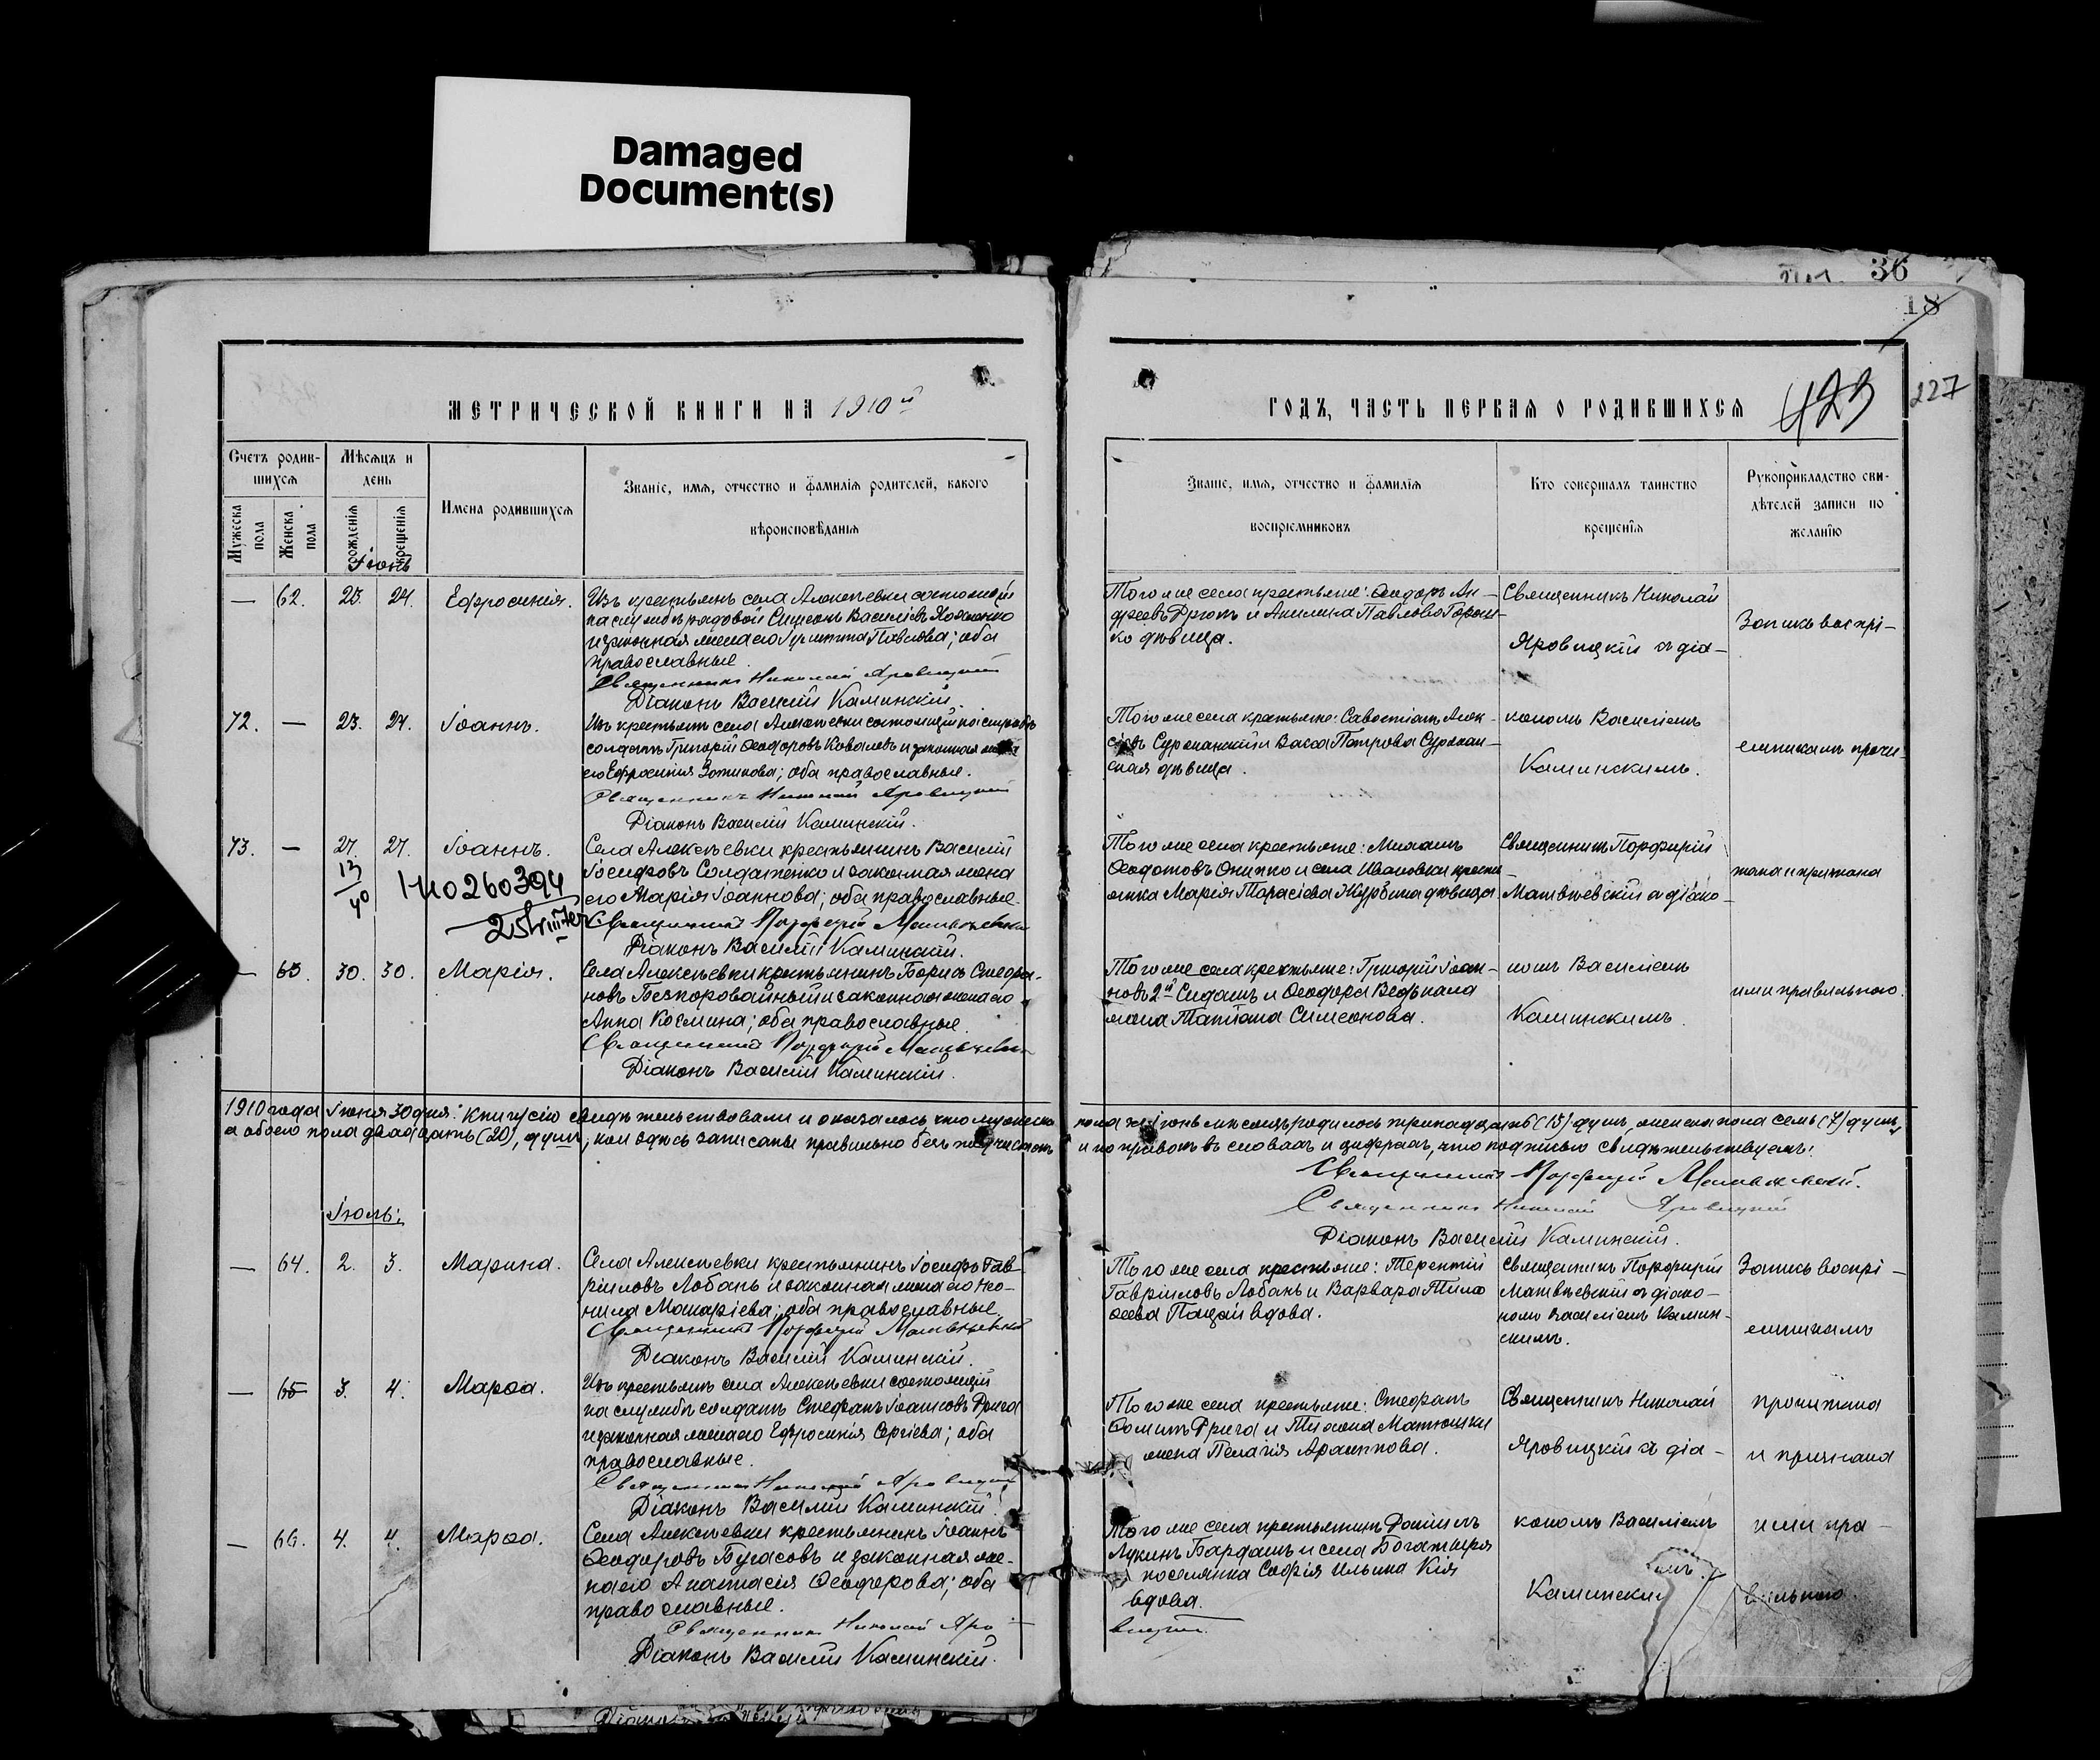 Damaged
Document(s)
36
18
227
423
МЕТРИЧЕСКОЙ КНИГИ НА 1910й
ГОДЪ, ЧАСТЬ ПЕРВАЯ О РОДИВШИХСЯ
Счетъ родив-
шихся
Мѣсяцъ и
день
Имена родившихся
Званіе, имя, отчество и фамилія родителей, какого
вѣроисповѣданія
Мужеска
пола
Женска
пола
рожденія
крещенія
Званіе, имя, отчество и фамилія
воспріемниковъ
Кто совершалъ таинство
крещенія
Рукоприкладство сви-
дѣтелей записи по
желанію
Іюнь
— 62. 23. 24. Ефросинія.
Изъ крестьянъ села Алексѣевки состоящій
на службѣ рядовой Симеонъ Василіевъ
и законная жена его Павлова; оба
православные.
Священникъ Николай Яровицкій
Діаконъ Василій Каминскій.
Того же села крестьяне: Ѳеодоръ Ан-
дреевъ и Акилина Павлова
ко дѣвица.
Священникъ Николай
Яровицкій съ діа-
Запись воспрі-
72. — 23. 24. Іоаннъ.
Изъ крестьянъ села Алексѣевки состоящій на службѣ
солдатъ Григорій Ѳеодоровъ Ковалевъ и законная жена
его Ефросинія Зотикова; оба православные.
Священникъ Николай Яровицкій
Діаконъ Василій Каминскій.
Того же села крестьяне: Савостіанъ Алек-
сѣевъ и Васса Петрова
ская дѣвица.
кономъ Василіемъ
Каминскимъ.
емниками прочи-
73. — 27. 27. Іоаннъ.
13
40
1-110260394
Села Алексѣевки крестьянинъ Василій
Іосифовъ Солдатенко и законная жена
его Марія Іоаннова; оба православные.
Священникъ Порфирій Матвѣевскій
Діаконъ Василій Каминскій.
Того же села крестьяне: Михаилъ
Ѳеодотовъ Онипко и села Ивановки крестья-
янка Марія Тарасіева дѣвица.
Священникъ Порфирій
Матвѣевскій съ діако-
тана и признана
— 63. 30. 30. Марія.
Села Алексѣевки крестьянинъ Борисъ Стефа-
новъ Безкоровайный и законная жена его
Анна Космина; оба православные.
Священникъ Порфирій Матвѣевскій
Діаконъ Василій Каминскій.
Того же села крестьяне: Григорій Іоан-
новъ 2й и Ѳеодора
жена Татіана Симеонова.
номъ Василіемъ
Каминскимъ.
ими правильною.
1910 года Іюня 30 дня: Книгу сію свидѣтельствовали и оказалось, что мужеска пола въ Іюнь мѣсяцъ родилось тринадцать (13) душъ, женска пола семь (7) душъ,
а обоего пола двадцать (20), душъ, кои здѣсь записаны правильно безъ подчистокъ и поправокъ въ словахъ и цифрахъ, что подписью свидѣтельствуемъ:
Священникъ Порфирій Матвѣевскій.
Священникъ Николай Яровицкій
Діаконъ Василій Каминскій.
Іюль:
— 64. 2. 3. Марина.
Села Алексѣевки крестьянинъ Іосифъ Гав-
ріиловъ Лобань и законная жена его Нео-
нила Макаріева; оба православные.
Священникъ Порфирій Матвѣевскій
Діаконъ Василій Каминскій.
Того же села крестьяне: Терентій
Гавріиловъ Лобань и Варвара Тимо
ѳеева Пацай вдова.
Священникъ Порфирій
Матвѣевскій съ діако-
номъ Василіемъ Камин-
скимъ.
Запись воспрі-
емниками
— 65 3. 4. Марѳа.
Изъ крестьянъ села Алексѣевки состоящій
на службѣ солдатъ Стефанъ Іоанновъ Дрига
и законная жена его Ефросинія Сергіева; оба
православные.
Священникъ Николай Яровицкій
Діаконъ Василій Каминскій.
Того же села крестьяне: Стефанъ
Ѳоминъ Дрига и Тихона Матюшки
жена Пелагія Архиппова.
Священникъ Николай
Яровицкій съ діа-
прочитана
и признана
— 66. 4. 4. Марѳа.
Села Алексѣевки крестьянинъ Іоаннъ
Ѳеодоровъ Бугасовъ и законная же-
на его Анастасія Ѳеодорова; оба
православные.
Священникъ Николай Яро-
вицкій.
Діаконъ Василій Каминскій.
Того же села крестьянинъ Даніилъ
Лукинъ Бардашъ и села Богатыря
поселянка Софія Ильина Кія
вдова.
кономъ Василіемъ
Каминскимъ.
ими пра-
вильною.